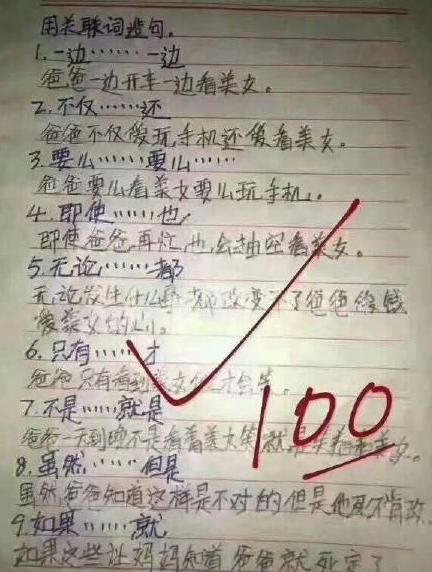 用关联词造句。
1.一边……一边
爸爸一边开车一边看美女。
2.不仅……还
爸爸不仅爱玩手机还爱看美女。
3.要么……要么……
爸爸要么看美女要么玩手机。
4.即使……也
即使爸爸再忙,也会抽空看美女。
5.无论……都
无论发生什么事都改变不了爸爸
爱美女的心。
6.只有……才
爸爸只有看到美女他才会笑。
7.不是……就是
爸爸一天到晚不是看着美女笑就是
8.虽然……但是
虽然爸爸知道这样是不对的但是他死不肯改。
9.如果……就
如果这些让妈妈知道爸爸就死定了
100